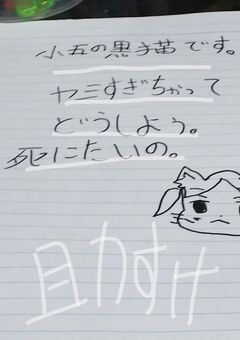 小五の黒猫です。
ヤミすぎちゃって
どうしよう。
死にたいの。
助すけ